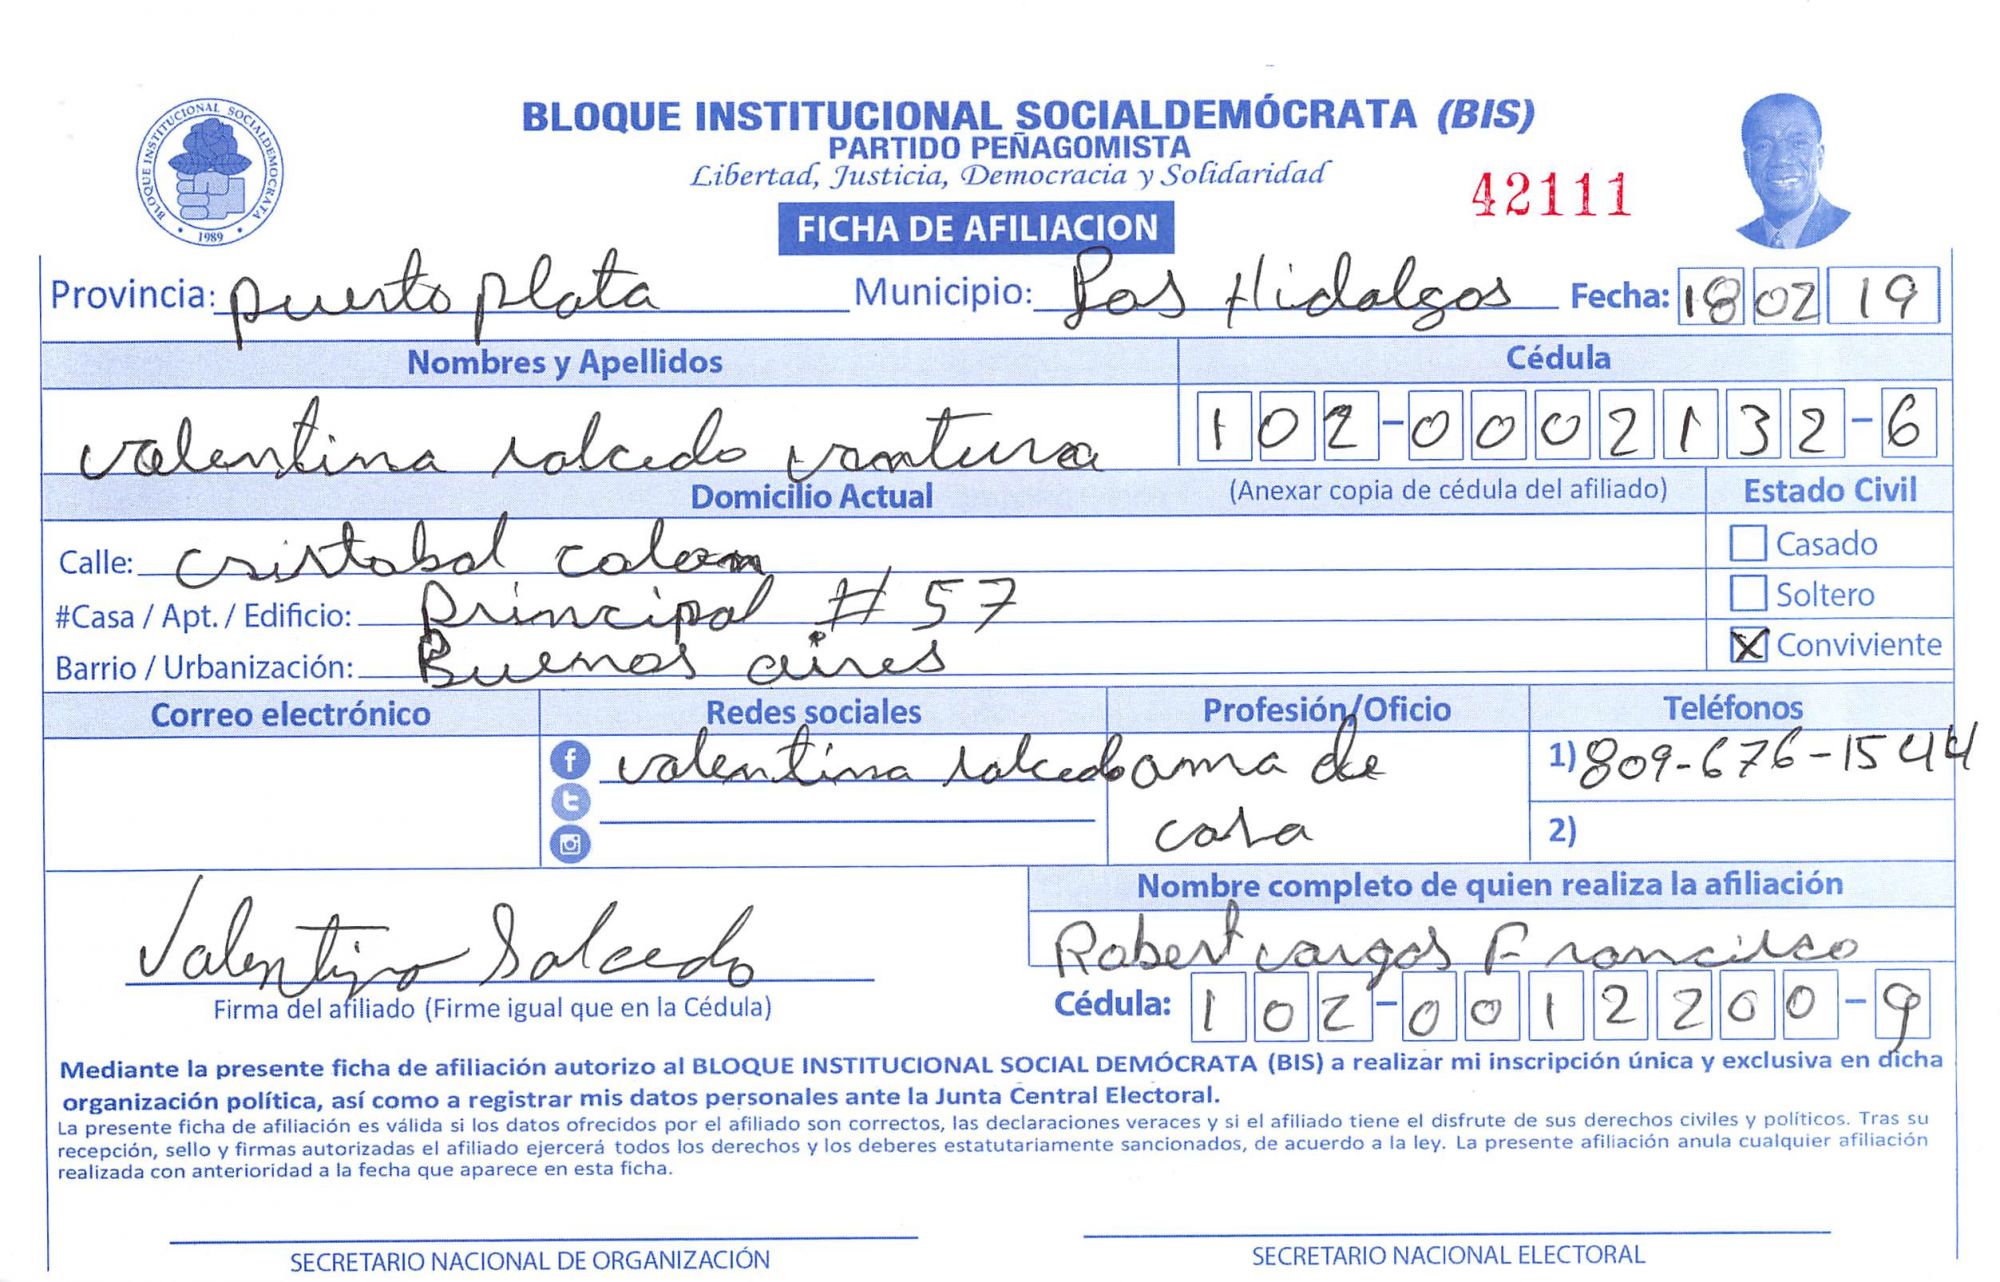 BLOQUE INSTITUCIONAL SOCIALDEMOCRATA
1989
BLOQUE INSTITUCIONAL SOCIALDEMÓCRATA (BIS)
PARTIDO PEÑAGOMISTA
Libertad, Justicia, Democracia y Solidaridad
42111
FICHA DE AFILIACION
Provincia: puerto plata Municipio: Los Hidalgos Fecha: 18 02 19
Nombres y Apellidos Cédula
valentina salcedo vantura 102-0002132-6
Domicilio Actual (Anexar copia de cédula del afiliado) Estado Civil
Calle: cristobal colon Casado
#Casa / Apt. / Edificio: principal # 57 Soltero
Barrio / Urbanización: Buenos aires X Conviviente
Correo electrónico Redes sociales Profesión/Oficio Teléfonos
valentina salcedo ama de 1) 809-676-1544
casa 2)
Nombre completo de quien realiza la afiliación
Valentina Salcedo Robert vargas Francisco
Firma del afiliado (Firme igual que en la Cédula) Cédula: 102-0012200-9
Mediante la presente ficha de afiliación autorizo al BLOQUE INSTITUCIONAL SOCIAL DEMÓCRATA (BIS) a realizar mi inscripción única y exclusiva en dicha
organización política, así como a registrar mis datos personales ante la Junta Central Electoral.
La presente ficha de afiliación es válida si los datos ofrecidos por el afiliado son correctos, las declaraciones veraces y si el afiliado tiene el disfrute de sus derechos civiles y políticos. Tras su
recepción, sello y firmas autorizadas el afiliado ejercerá todos los derechos y los deberes estatutariamente sancionados, de acuerdo a la ley. La presente afiliación anula cualquier afiliación
realizada con anterioridad a la fecha que aparece en esta ficha.
SECRETARIO NACIONAL DE ORGANIZACIÓN SECRETARIO NACIONAL ELECTORAL